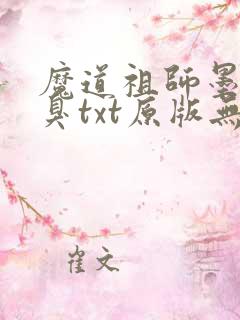 魔道祖師墨
臭txt原版無
雀文